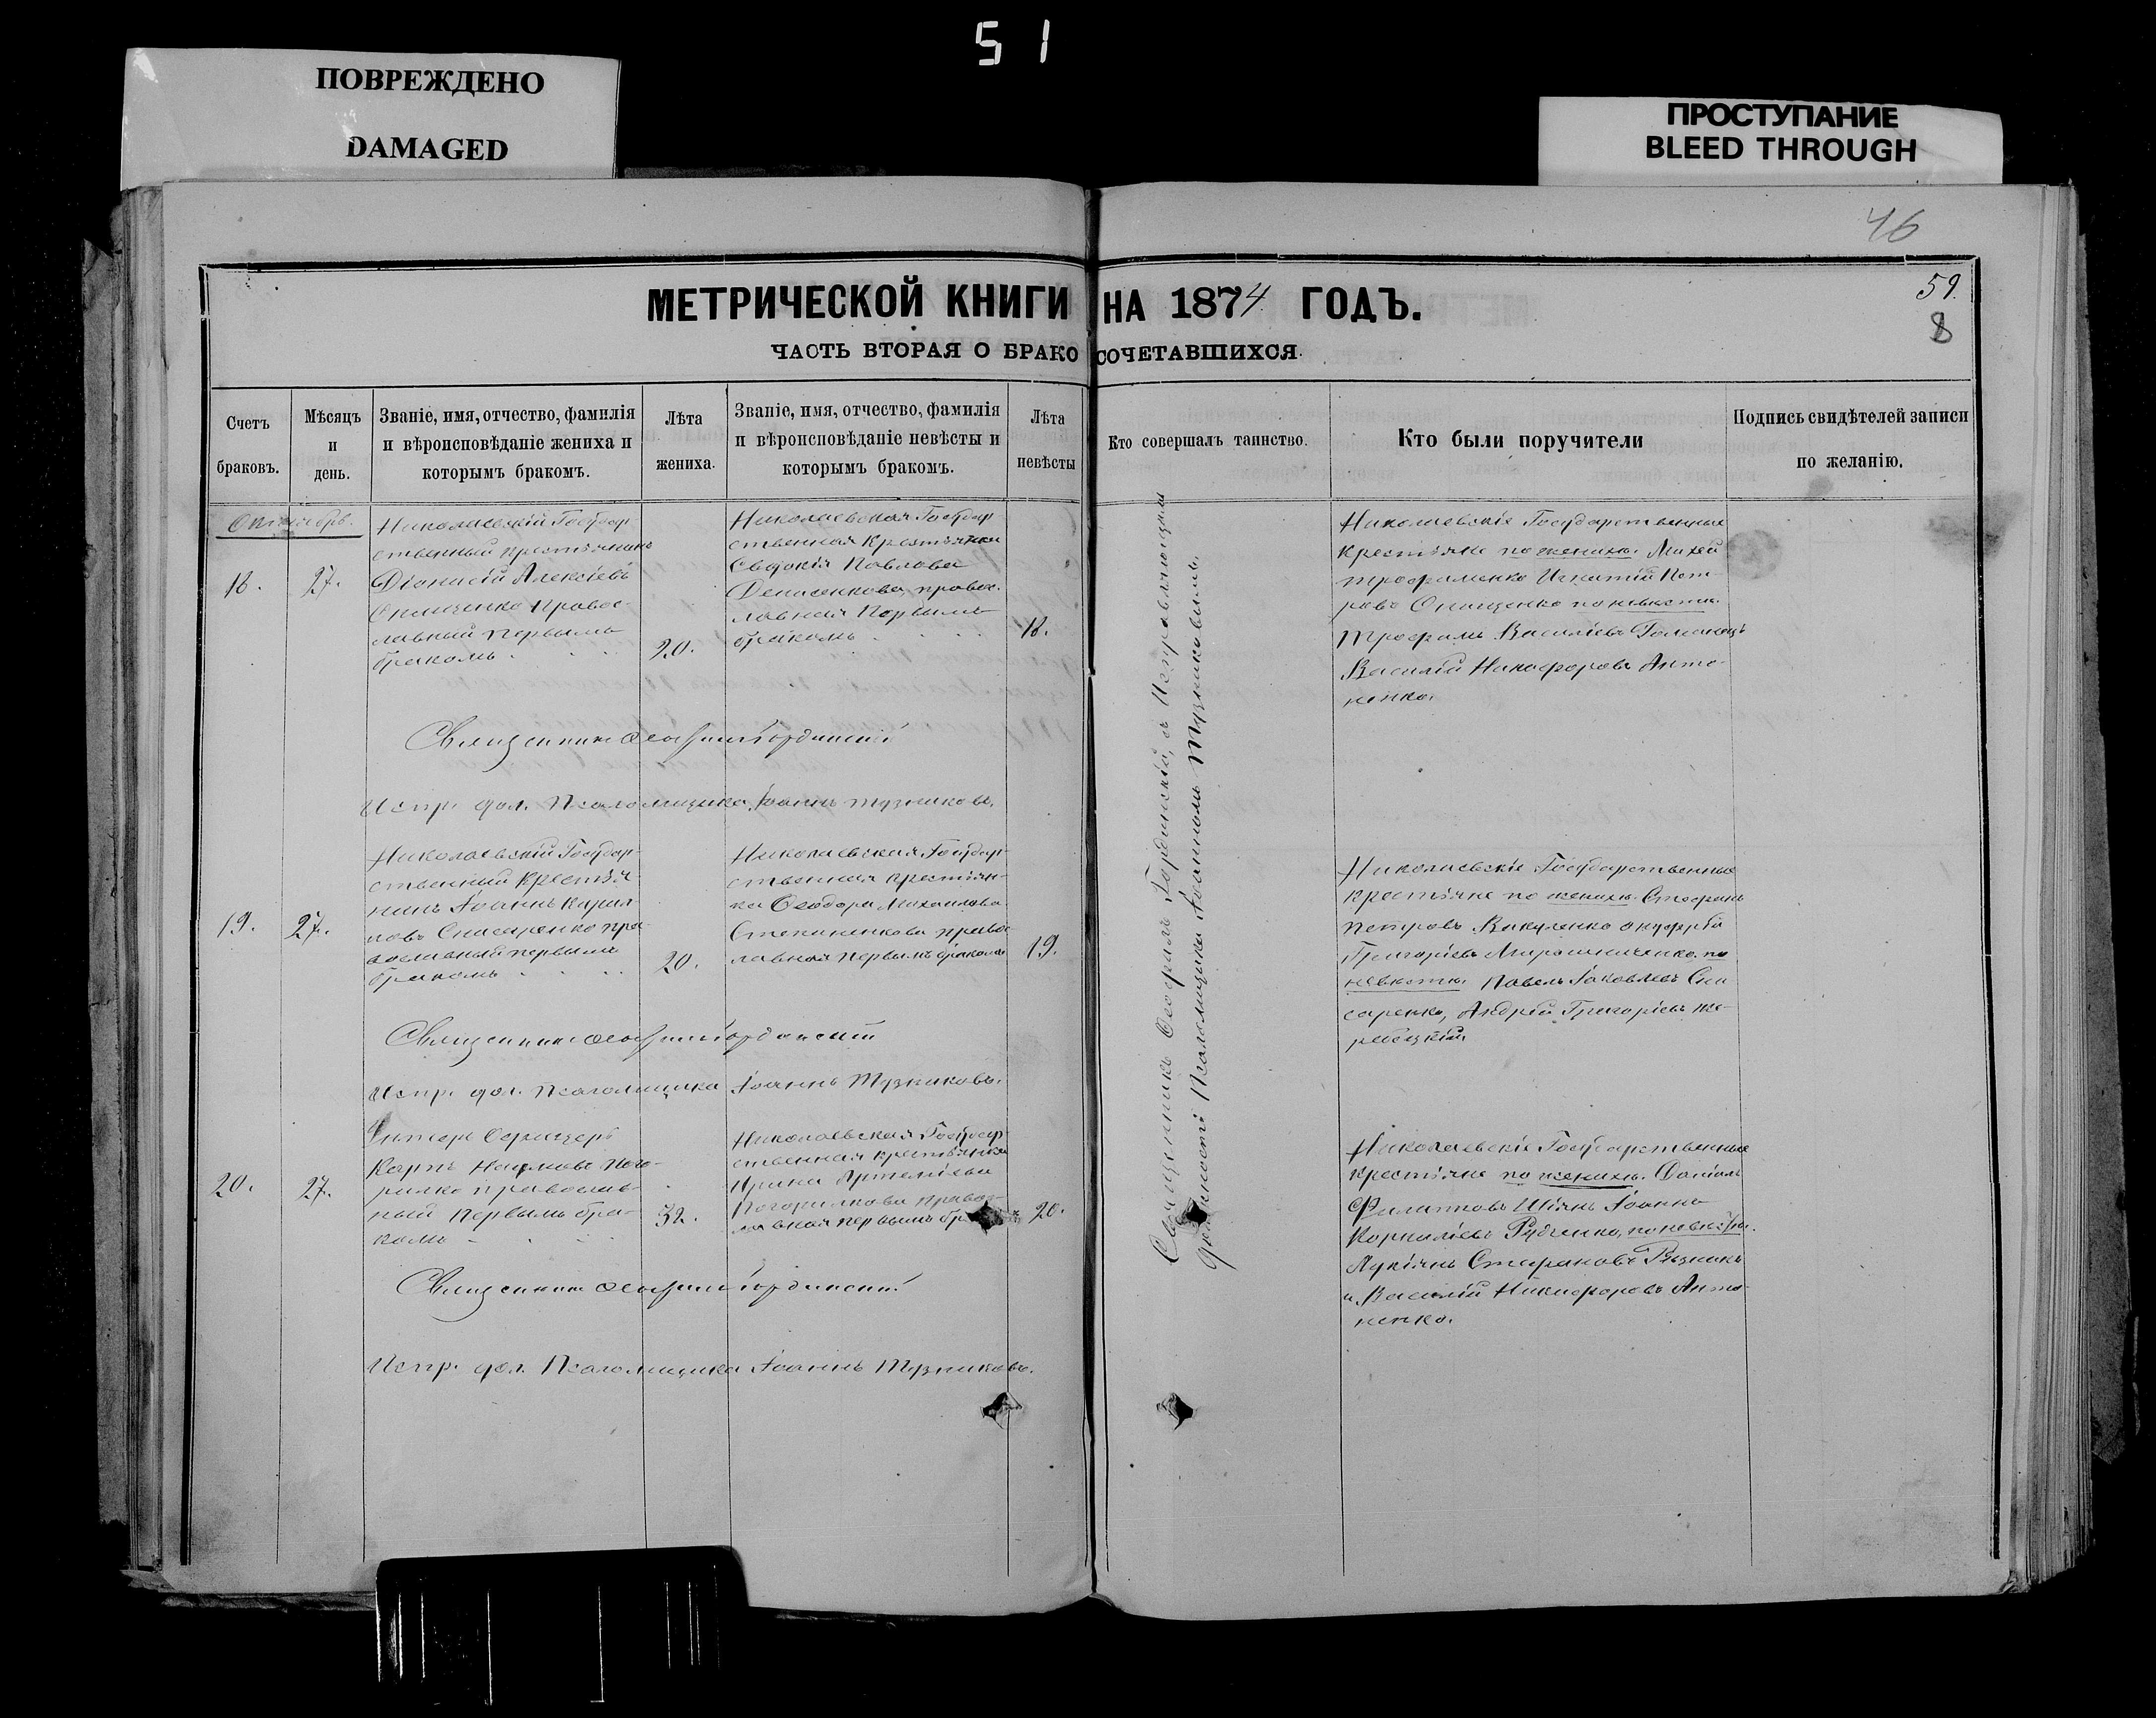 51
ПОВРЕЖДЕНО
DAMAGED
ПРОСТУПАНИЕ
BLEED THROUGH
46
59.
8
МЕТРИЧЕСКОЙ КНИГИ НА 1874 ГОДЪ.
ЧАСТЬ ВТОРАЯ О БРАКОСОЧЕТАВШИХСЯ.
Счетъ браковъ.
Мѣсяцъ и день.
Званіе, имя, отчество, фамилія и вѣроисповѣданіе жениха и которымъ бракомъ.
Лѣта жениха.
Званіе, имя, отчество, фамилія и вѣроисповѣданіе невѣсты и которымъ бракомъ.
Лѣта невѣсты
Кто совершалъ таинство.
Кто были поручители
Подпись свидѣтелей записи по желанію.
Октябрь.
18.
27.
Николаевскій Государ-
ственный крестьянинъ
Діонисій Алексіевъ
Онищенко Правос-
лавный первымъ
бракомъ
20.
Николаевская Государ-
ственная Крестьянка
Евдокія Павлова
Денисенкова правос-
лавная Первымъ
бракомъ
18.
Николаевскіе Государственные
крестьяне по женихѣ. Михей
Трофименко Игнатій Пет-
ровъ Онищенко по невѣстѣ.
Трофимъ Василіевъ
Василій Никифоровъ Анто-
ненко.
Священникъ Ѳеофилъ Гординскій
Испр. дол. Псаломщика Іоаннъ Тузниковъ.
19.
27.
Николаевскій Государ-
ственный Крестья-
нинъ Іоаннъ Кирил-
ловъ Снисаренко пра-
вославный первымъ
бракомъ
20.
Николаевская Государ-
ственная крестьян-
ка Ѳеодора Михаилова
Степаненкова право-
лавная первымъ бракомъ
19.
Николаевскіе Государственные
крестьяне по женихѣ. Стефанъ
Петровъ Викуленко Онуфрій
Григоріевъ Мирошниченко. по
невѣстѣ. Павелъ Іаковлевъ Сни
саренко, Андрей Григоріевъ Же-
ребецкій
Священникъ Ѳеофилъ Гординскій
Испр. дол. Псаломщика Іоаннъ Тузниковъ.
20.
27.
Унтеръ Офицеръ
Карпъ Наумовъ Пого-
рилко православ-
ный первымъ бра-
комъ
32.
Николаевская Государ-
ственная крестьянка
Ирина Артеміева
Погорилкова правос-
лавная первымъ
20.
Николаевскіе Государственные
крестьяне по женихѣ. Даніилъ
Филипповъ Шіянъ Іоаннъ
Корниліевъ Рудченко, по невѣстѣ.
Лукіянъ Стефановъ Рѣзникъ
и Василій Никифоровъ Анто-
ненко.
Священникъ Ѳеофилъ Гординскій
Испр. дол. Псаломщика Іоаннъ Тузниковъ.
Священникъ Ѳеофилъ Гординскій, съ Исправляющимъ
должность Псаломщика Іоанномъ Тузниковымъ.